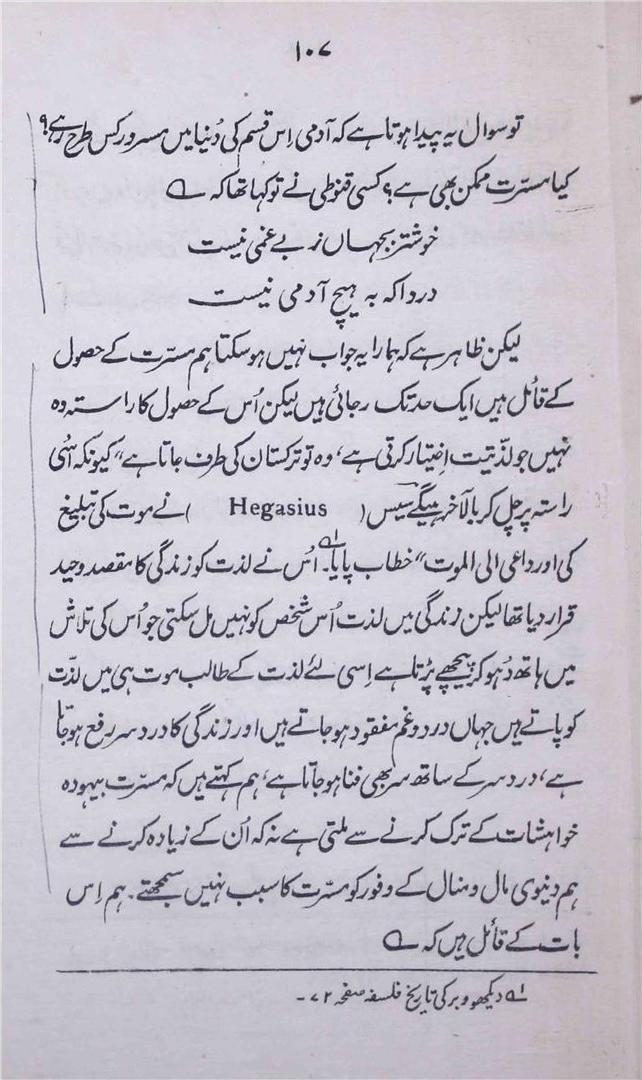 ۱۰۷
تو سوال یہ پیدا ہوتا ہے کہ آدمی اِس قسم کی دُنیا میں مسرور کس طرح رہے؟
کیا مسرّت ممکن بھی ہے؟ کسی قنوطی نے تو کہا تھا کہ ؎
خوشتر بجہاں ز بے غمی نیست
دردا کہ بہ ہیچ آدمی نیست
لیکن ظاہر ہے کہ ہمارا یہ جواب نہیں ہو سکتا ہم مسرّت کے حصول
کے قائل ہیں ایک حد تک رجائی ہیں لیکن اُس کے حصول کا راستہ وہ
نہیں جو لذّتیت اِختیار کرتی ہے، وہ تو ترکستان کی طرف جاتا ہے“ کیونکہ اسی
راستہ پر چل کر بالآخر ہیگے سیس ( Hegasius ) نے موت کی تبلیغ
کی اور داعی الی الموت“ خطاب پایا۔ ؎۱ اُس نے لذت کو زندگی کا مقصد وحید
قرار دیا تھا لیکن زندگی میں لذت اُس شخص کو نہیں مل سکتی جو اُس کی تلاش
میں ہاتھ دُہو کر پیچھے پڑتا ہے اِسی لئے لذت کے طالب موت ہی میں لذّت
کو پاتے ہیں جہاں درد و غم مفقود ہو جاتے ہیں اور زندگی کا درد سر رفع ہو جاتا
ہے، درد سر کے ساتھ سر بھی فنا ہو جاتا ہے، ہم کہتے ہیں کہ مسرّت بیہودہ
خواہشات کے ترک کرنے سے ملتی ہے نہ کہ اُن کے زیادہ کرنے سے
ہم دنیوی مال و منال کے وفور کو مسرّت کا سبب نہیں سمجھتے۔ ہم اِس
بات کے قائل ہیں کہ ؎
؎۱ دیکھو ویبر کی تاریخ فلسفہ صفحہ ۷۲ -